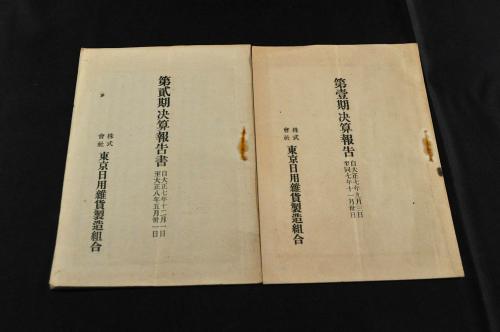 第壹期決算報告
自大正七年九月三日
至同七年十一月卅日
株式會社 東京日用雜貨製造組合
第貳期決算報告書
自大正七年十二月一日
至大正八年五月卅一日
株式會社 東京日用雜貨製造組合